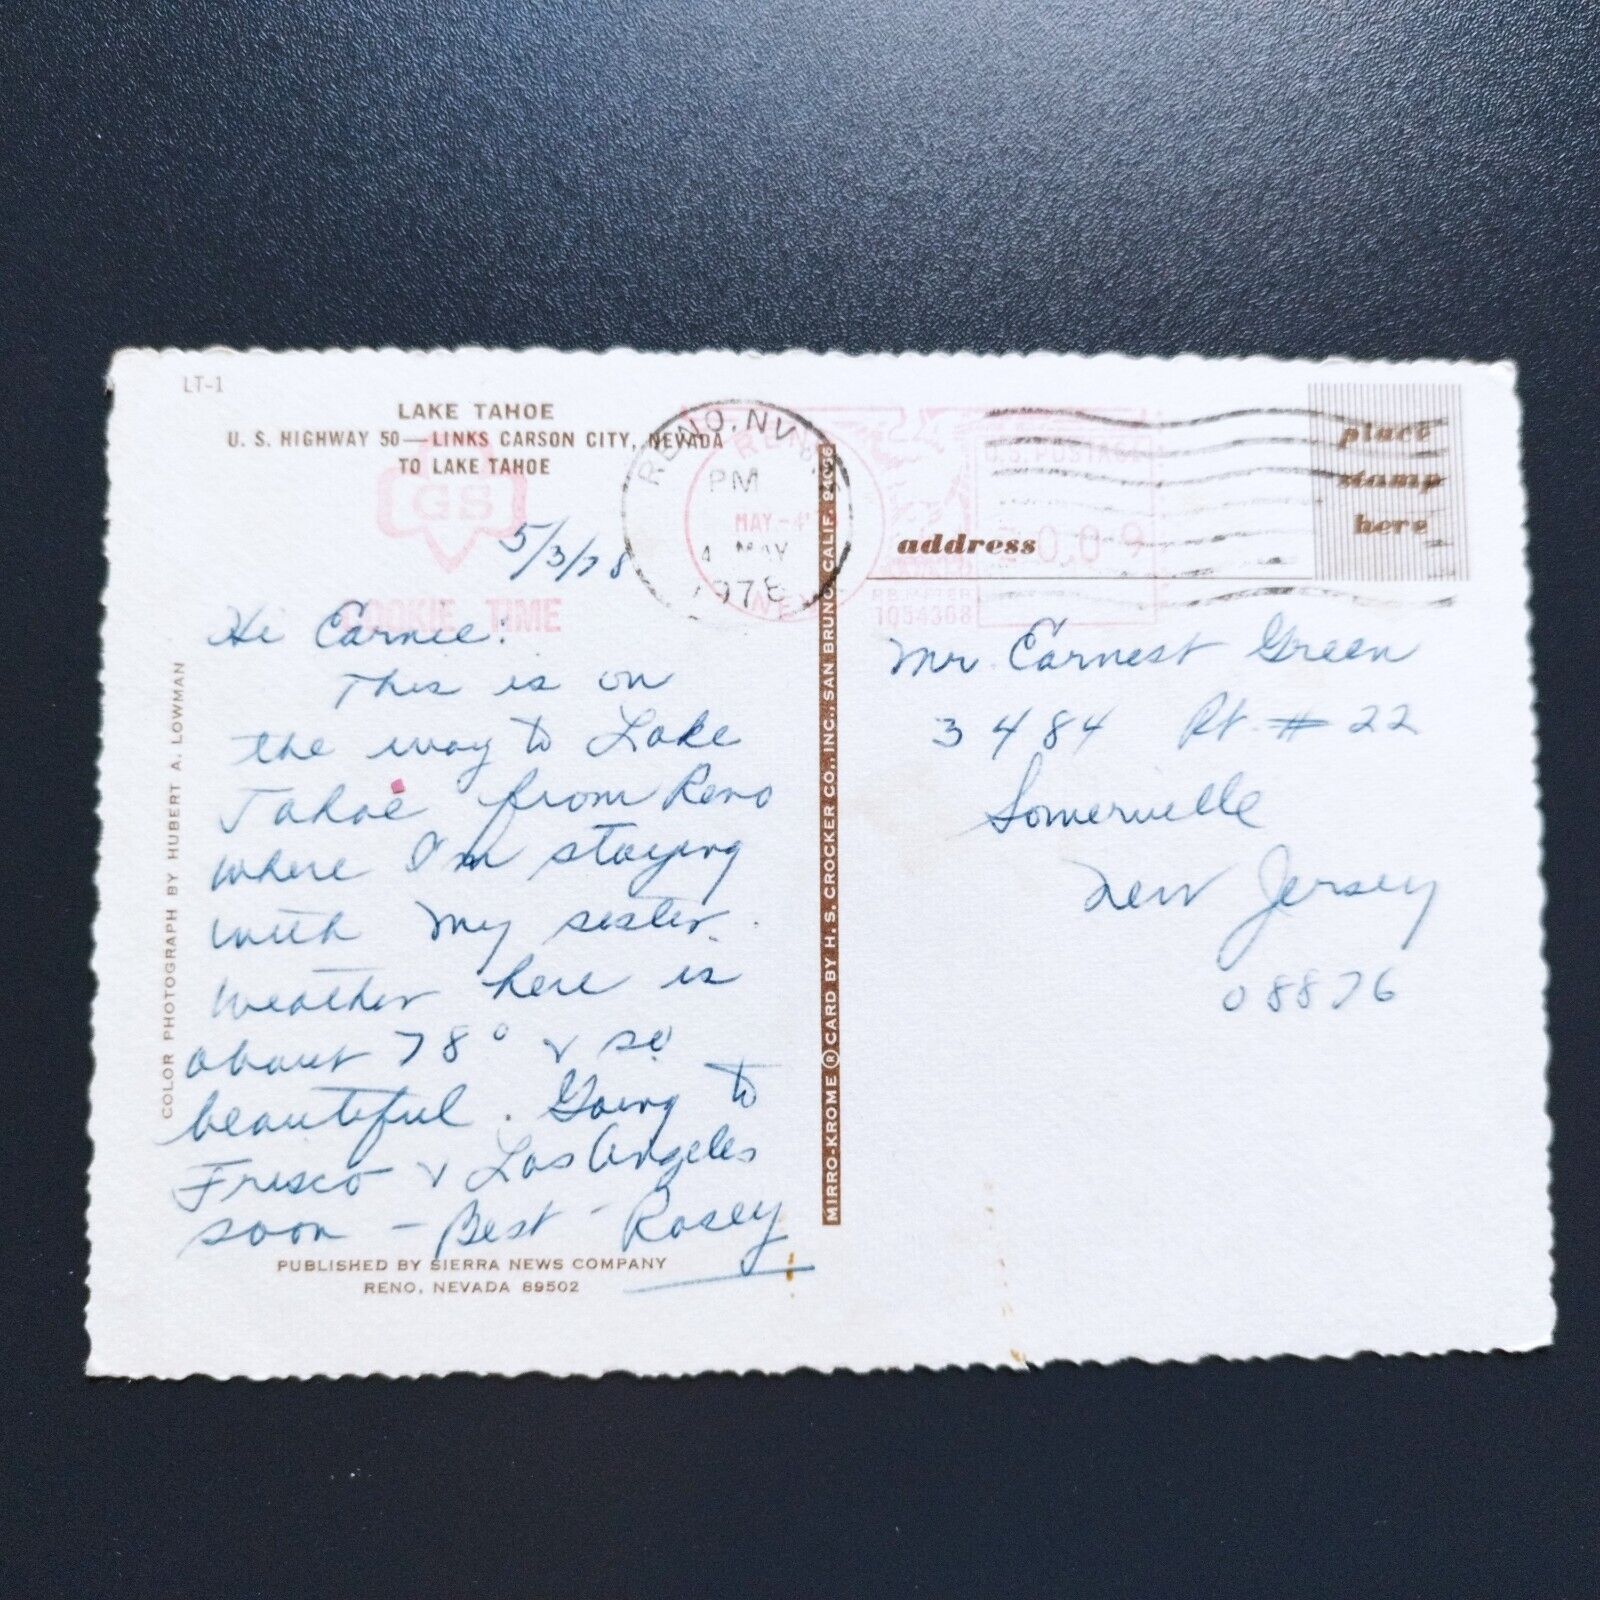 LT-1
LAKE TAHOE
U. S. HIGHWAY 50—LINKS CARSON CITY, NEVADA
TO LAKE TAHOE
GS
COOKIE TIME
5/3/78
Hi Earnee:
This is on
the way to Lake
Tahoe from Reno
where I'm staying
with my sister.
Weather here is
about 78° & so
beautiful. Going to
Frisco & Los Angeles
soon - Best - Rosey
PUBLISHED BY SIERRA NEWS COMPANY
RENO, NEVADA 89502
COLOR PHOTOGRAPH BY HUBERT A. LOWMAN
MIRRO-KROME ® CARD BY H. S. CROCKER CO., INC., SAN BRUNO, CALIF. 94066
RENO, NV
PM
4 MAY
1978
RENO
MAY-4
NEV
U.S. POSTAGE
0.09
PB METER
1054368
place
stamp
here
address
Mr. Earnest Green
3484 Rt. # 22
Somerville
New Jersey
08876